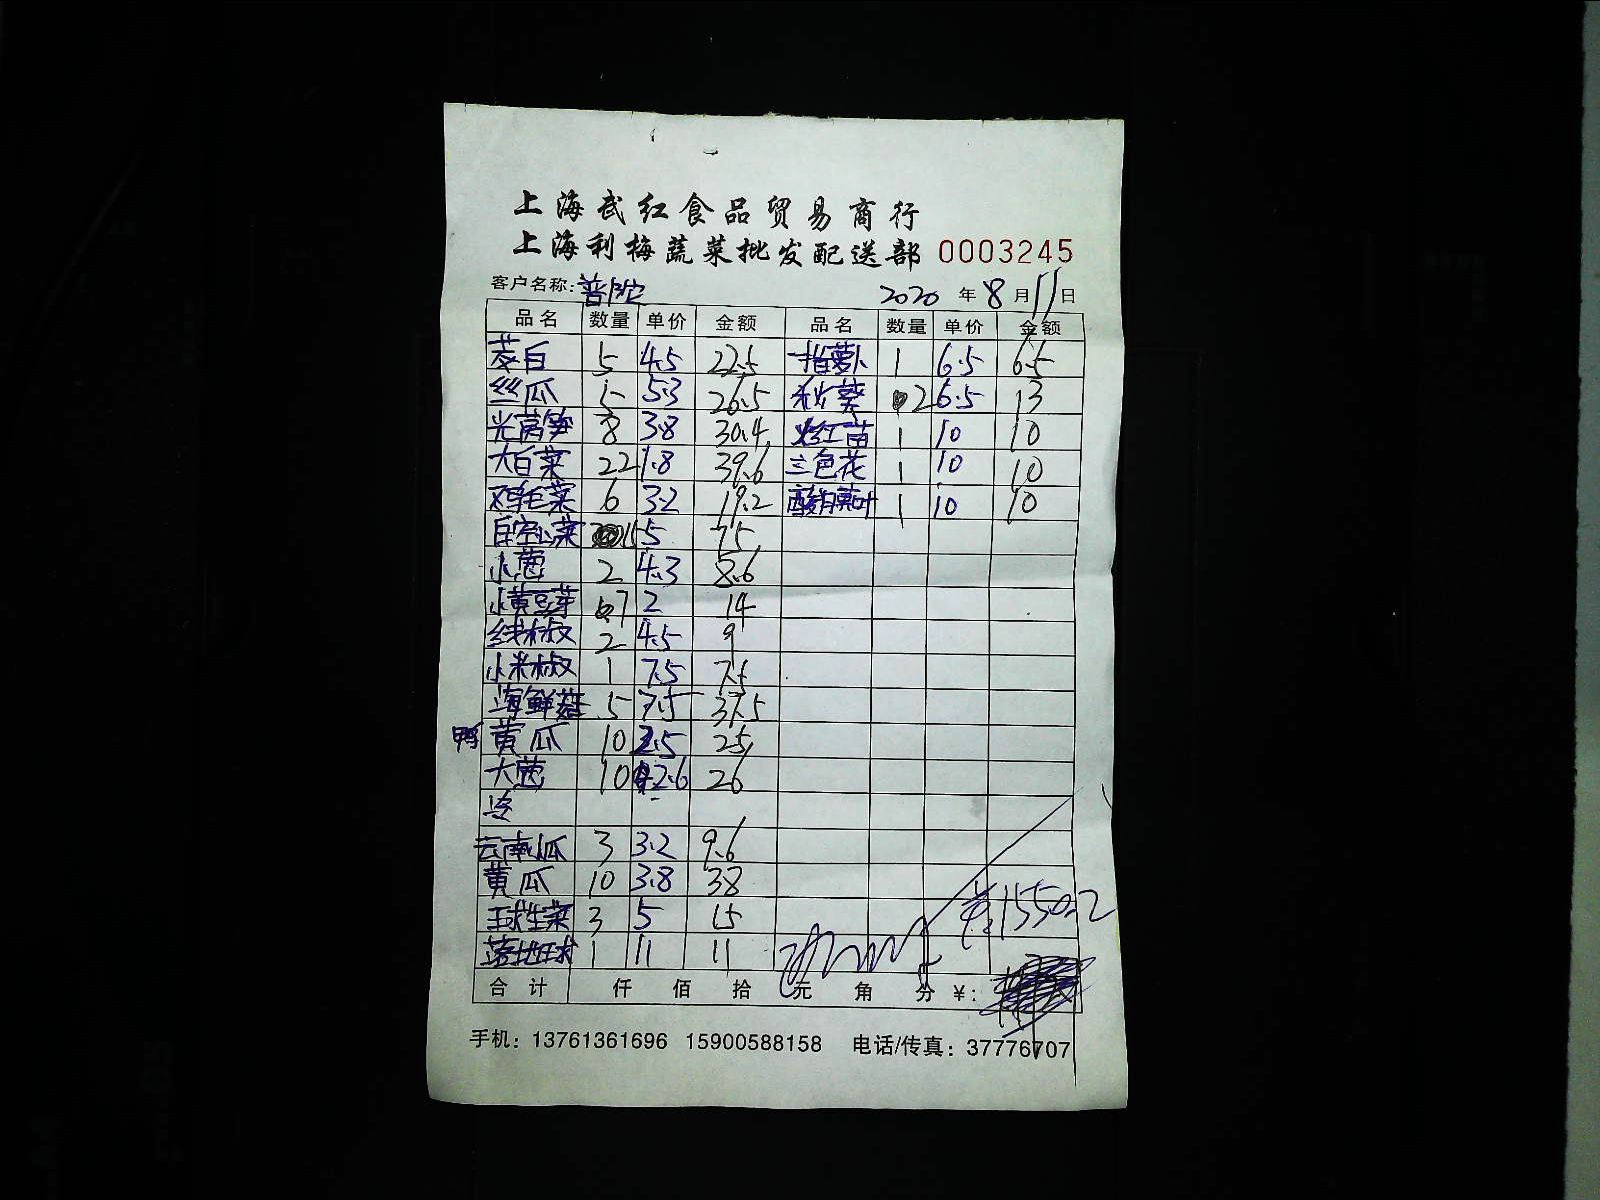 上海武红食品贸易商行
上海利梅蔬菜批发配送部 0003245
客户名称: 普陀 2020 年 8 月 11 日
品名 数量 单价 金额 品名 数量 单价 金额
茭白 5 4.5 22.5 指萝卜 1 6.5 6.5
丝瓜 5 5.3 26.5 秋葵 2 6.5 13
光莴笋 8 3.8 30.4 红苗 1 10 10
大白菜 22 1.8 39.6 三色花 1 10 10
鸡毛菜 6 3.2 19.2 酸模叶 1 10 10
白空心菜 15 5 75
小葱 2 4.3 8.6
小黄豆芽 7 2 14
线椒 2 4.5 9
小米椒 1 7.5 7.5
海鲜菇 5 7.5 37.5
鸭 黄瓜 10 2.5 25
大葱 10 2.6 26
冷
云南小瓜 3 3.2 9.6
黄瓜 10 3.8 38
球生菜 3 5 15
落地球 1 11 11
1550.2
合计 仟 佰 拾 元 角 分 ¥:
手机: 13761361696 15900588158 电话/传真: 37776707